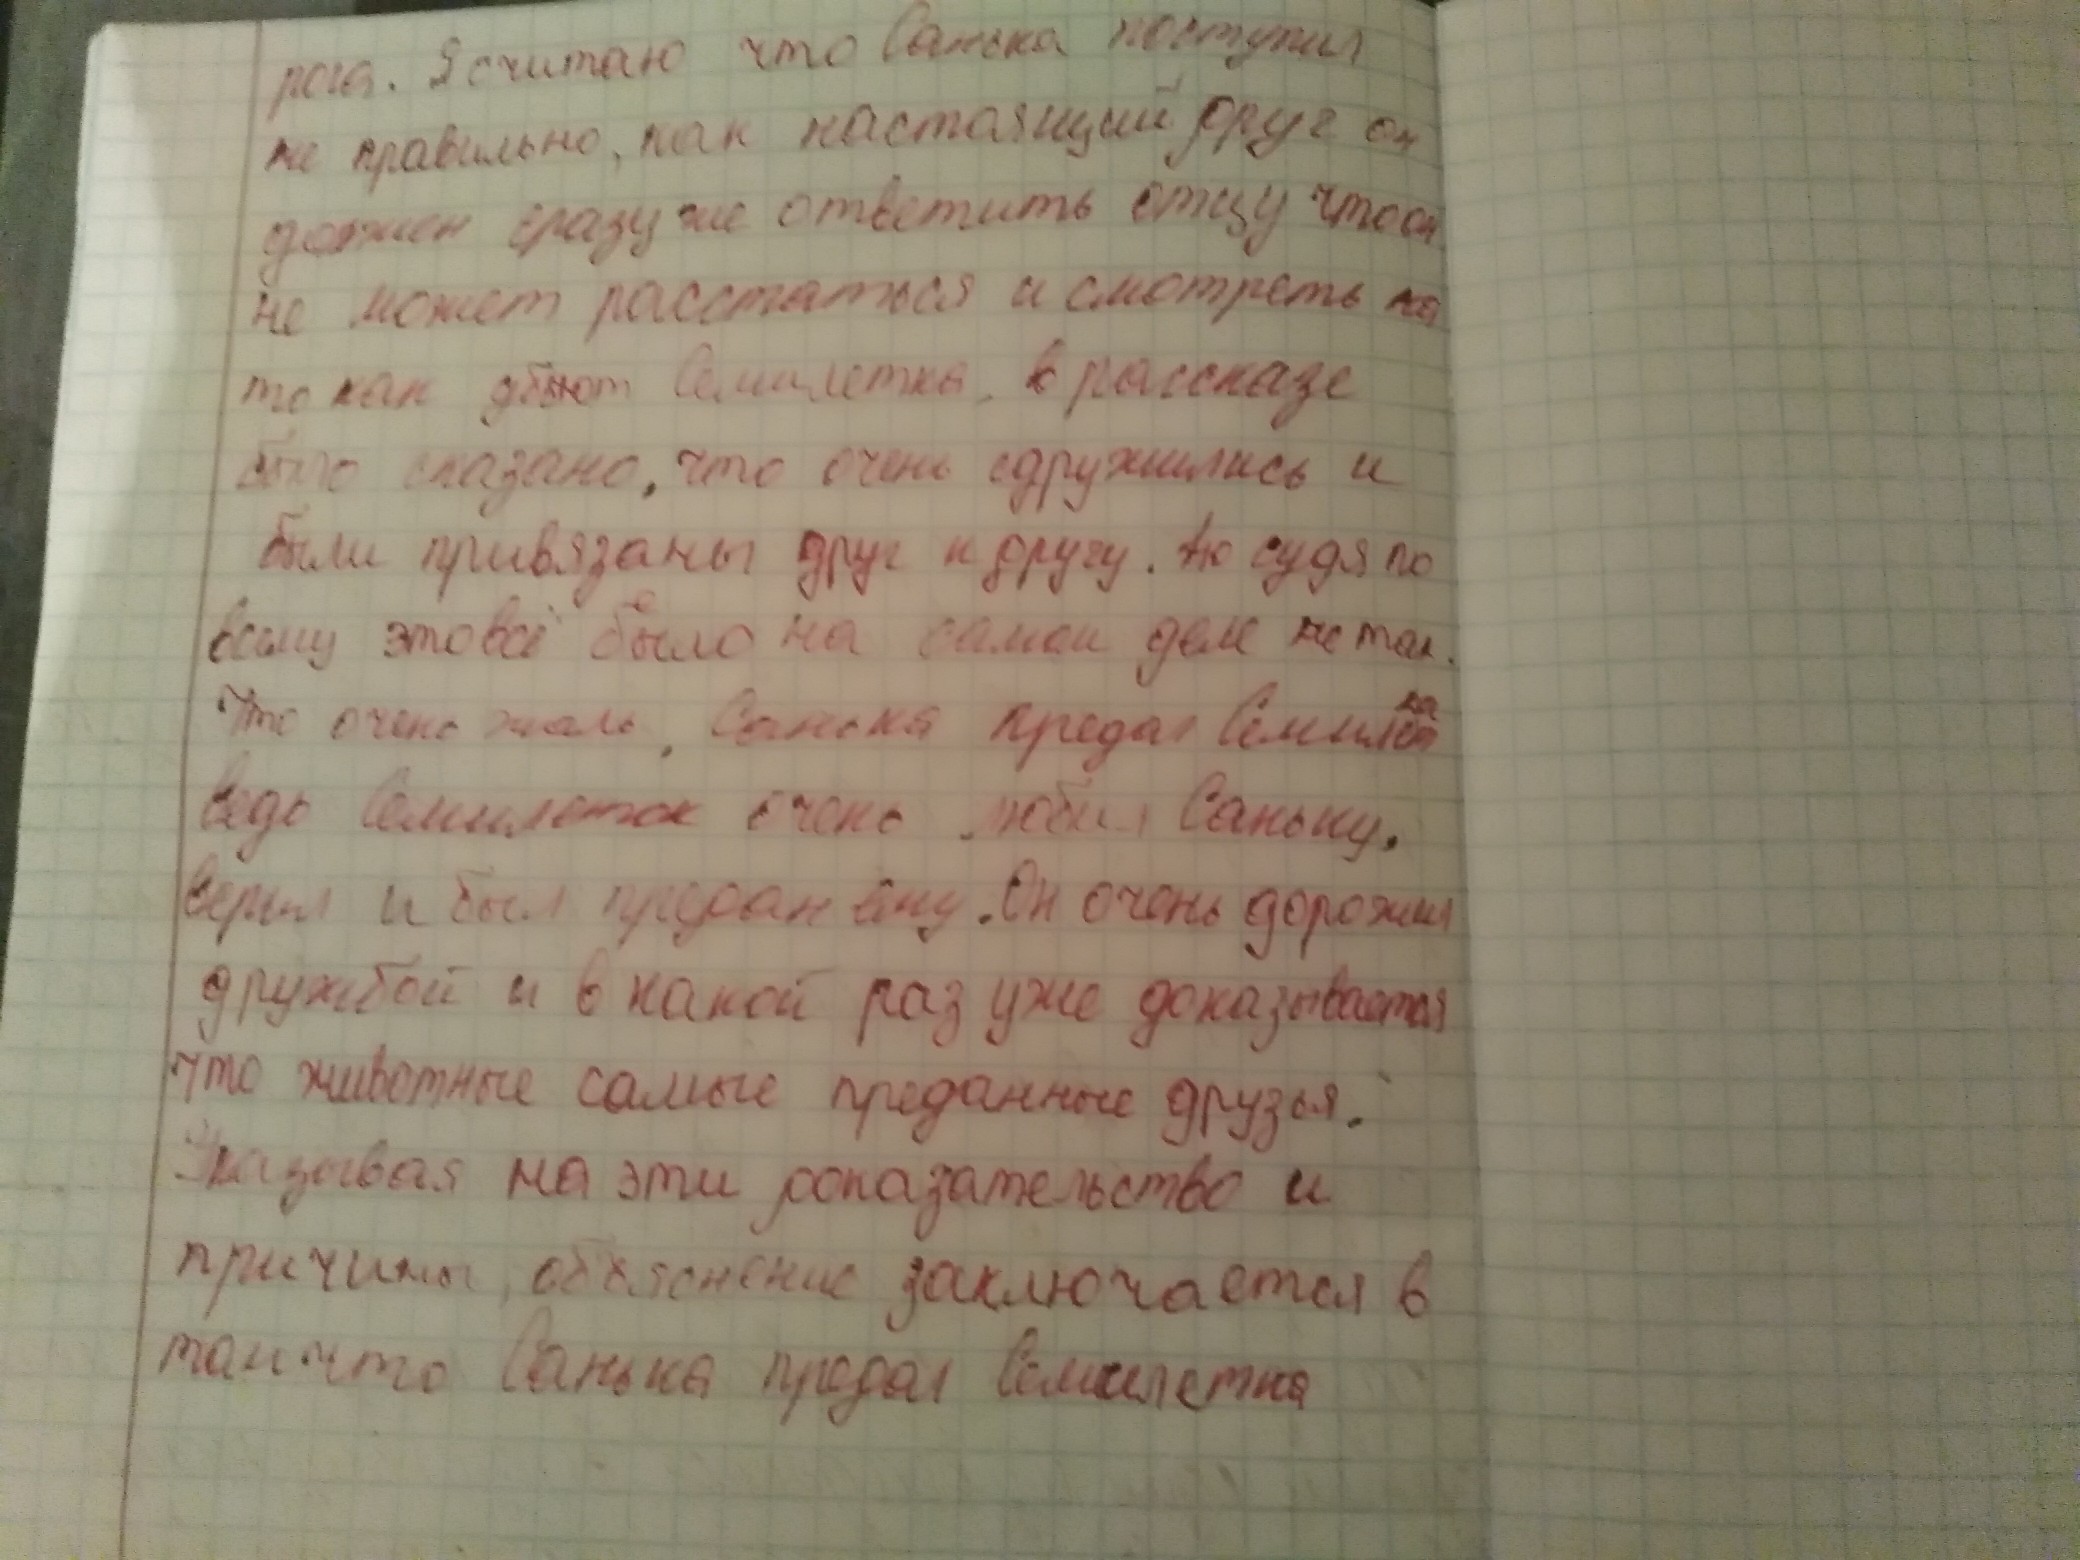 рога. Я считаю что Санька поступил
не правильно, как настоящий друг он
должен сразу же ответить отцу что он
не может расстаться и смотреть на
то как убьют Семилетка. В рассказе
было сказано, что очень сдружились и
были привязаны друг к другу. Но судя по
всему это всё было на самом деле не так.
Что очень жаль, Санька предал Семилетка
ведь Семилеток очень любил Саньку,
верил и был предан ему. Он очень дорожил
дружбой и в какой раз уже доказывается
что животные самые преданные друзья.
Указывая на эти доказательство и
причины, объяснение заключается в
том что Санька предал Семилетка